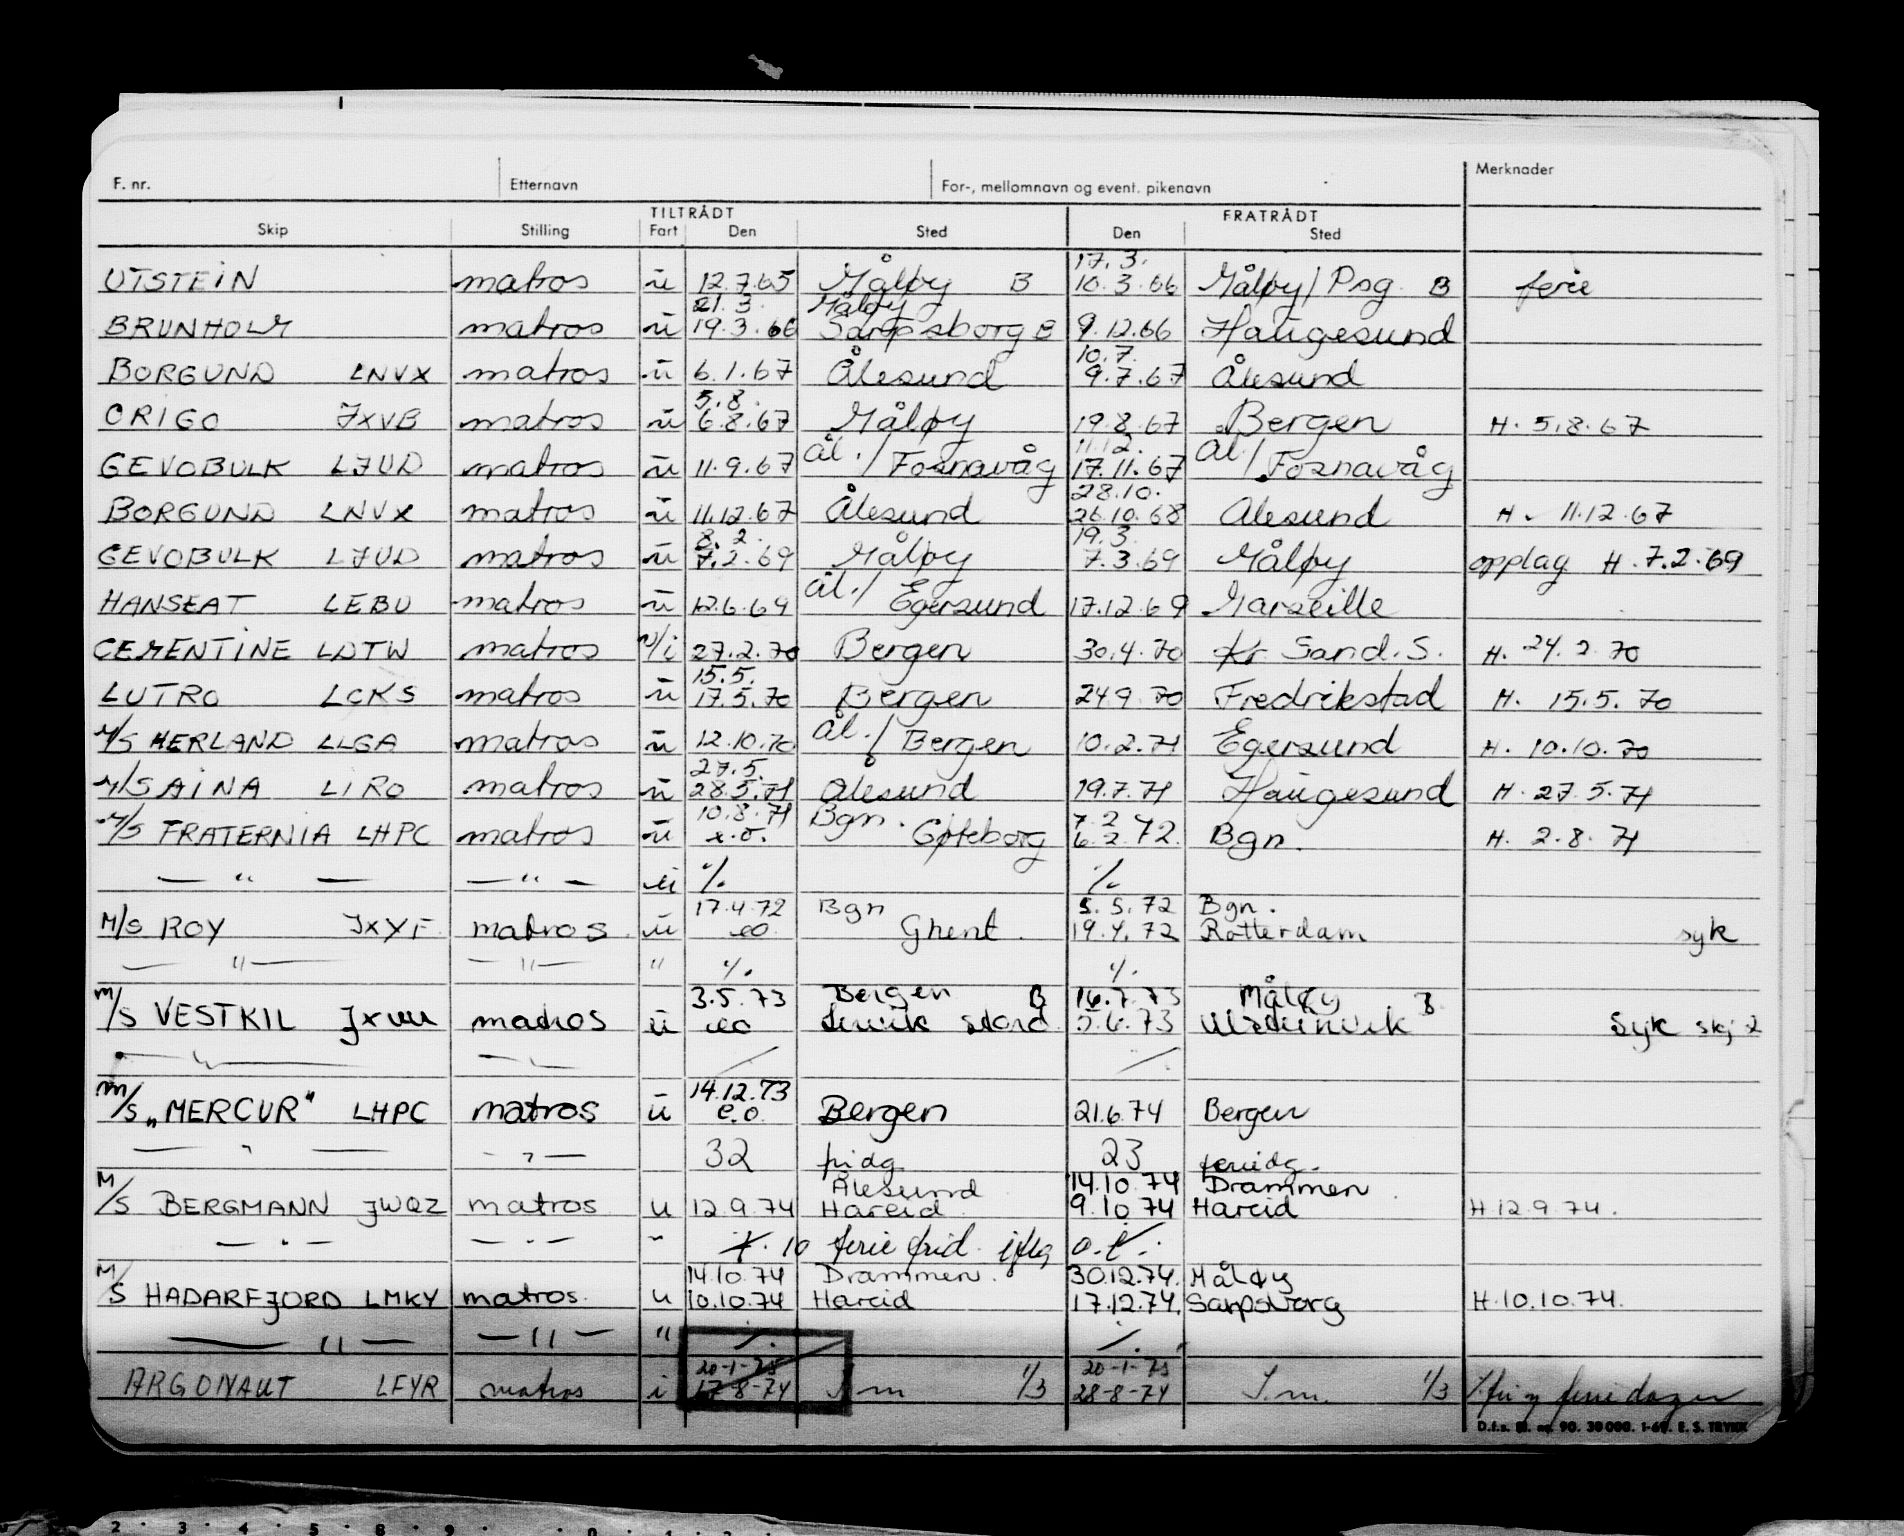 F. nr. Etternavn For-, mellomnavn og event. pikenavn Merknader
TILTRÅDT FRATRÅDT
Skip Stilling Fart Den Sted Den Sted
17.3.
UTSTEIN matros u 12.7.65 Måløy B 10.3.66 Måløy/Psg B ferie
21.3. Måløy
BRUNHOLM matros u 19.3.66 Sarpsborg B 9.12.66 Haugesund
10.7.
BORGUND LNVX matros u 6.1.67 Ålesund 9.7.67 Ålesund
5.8.
ORIGO JXVB matros u 6.8.67 Måløy 19.8.67 Bergen H. 5.8.67
11.12.
GEVOBULK LJUD matros u 11.9.67 Ål./Fosnavåg 17.11.67 Ål/Fosnavåg
28.10.
BORGUND LNVX matros u 11.12.67 Ålesund 26.10.68 Ålesund H. 11.12.67
8.2. 19.3.
GEVOBULK LJUD matros u 7.2.69 Måløy 7.3.69 Måløy opplag H. 7.2.69
HANSEAT LEBU matros u 12.6.69 Ål./Egersund 17.12.69 Marseille
CEMENTINE LDTW matros u/i 27.2.70 Bergen 30.4.70 Kr. Sand. S. H. 24.2.70
15.5.
LUTRO LCKS matros u 17.5.70 Bergen 24.9.70 Fredrikstad H. 15.5.70
M/S HERLAND LLGA matros u 12.10.70 Ål./Bergen 10.2.71 Egersund H. 10.10.70
27.5.
M/S AINA LIRO matros u 28.5.71 Ålesund 19.7.71 Haugesund H. 27.5.71
10.8.71 Bgn. 7.2
M/S FRATERNIA LHPC matros u e.o. Gøteborg 6.2.72. Bgn. H. 2.8.71
— " — — " — u ·/. ·/.
17.4.72 Bgn 5.5.72 Bgn.
M/S ROY JXYF matros u eo Ghent 19.4.72 Rotterdam syk
— " — — " — " ·/. ·/.
3.5.73 Bergen B 16.7.73 Måløy B
M/S VESTKIL JXUU matros u eo Leirvik Stord 5.6.73 Ulsteinvik Syk skj 2
— " — — " —
14.12.73
M/S „MERCUR" LHPC matros u e.o. Bergen 21.6.74 Bergen
— " — — " — 32 fridg 23 feriedg.
Ålesund 14.10.74 Drammen
M/S BERGMANN JWQZ matros u 12.9.74 Hareid 9.10.74 Hareid H. 12.9.74.
— " — — " — " ·/. 10 ferie frid. iflg o.l.
14.10.74 Drammen. 30.12.74. Måløy
M/S HADARFJORD LMKY matros. u 10.10.74 Hareid 17.12.74. Sarpsborg H. 10.10.74.
— " — — " — " ·/. ·/.
20-1-75 20-1-75
ARGONAUT LFYR matros i 17-8-74 S.m 1/3 28-8-74 S.m. 1/3 ·/. fri og feriedager
D.f.s. Bl. nr. 90. 30 000. 1-69. E. S. TRYKK
2 · 3 · 4 · 5 · 8 · 9 ·